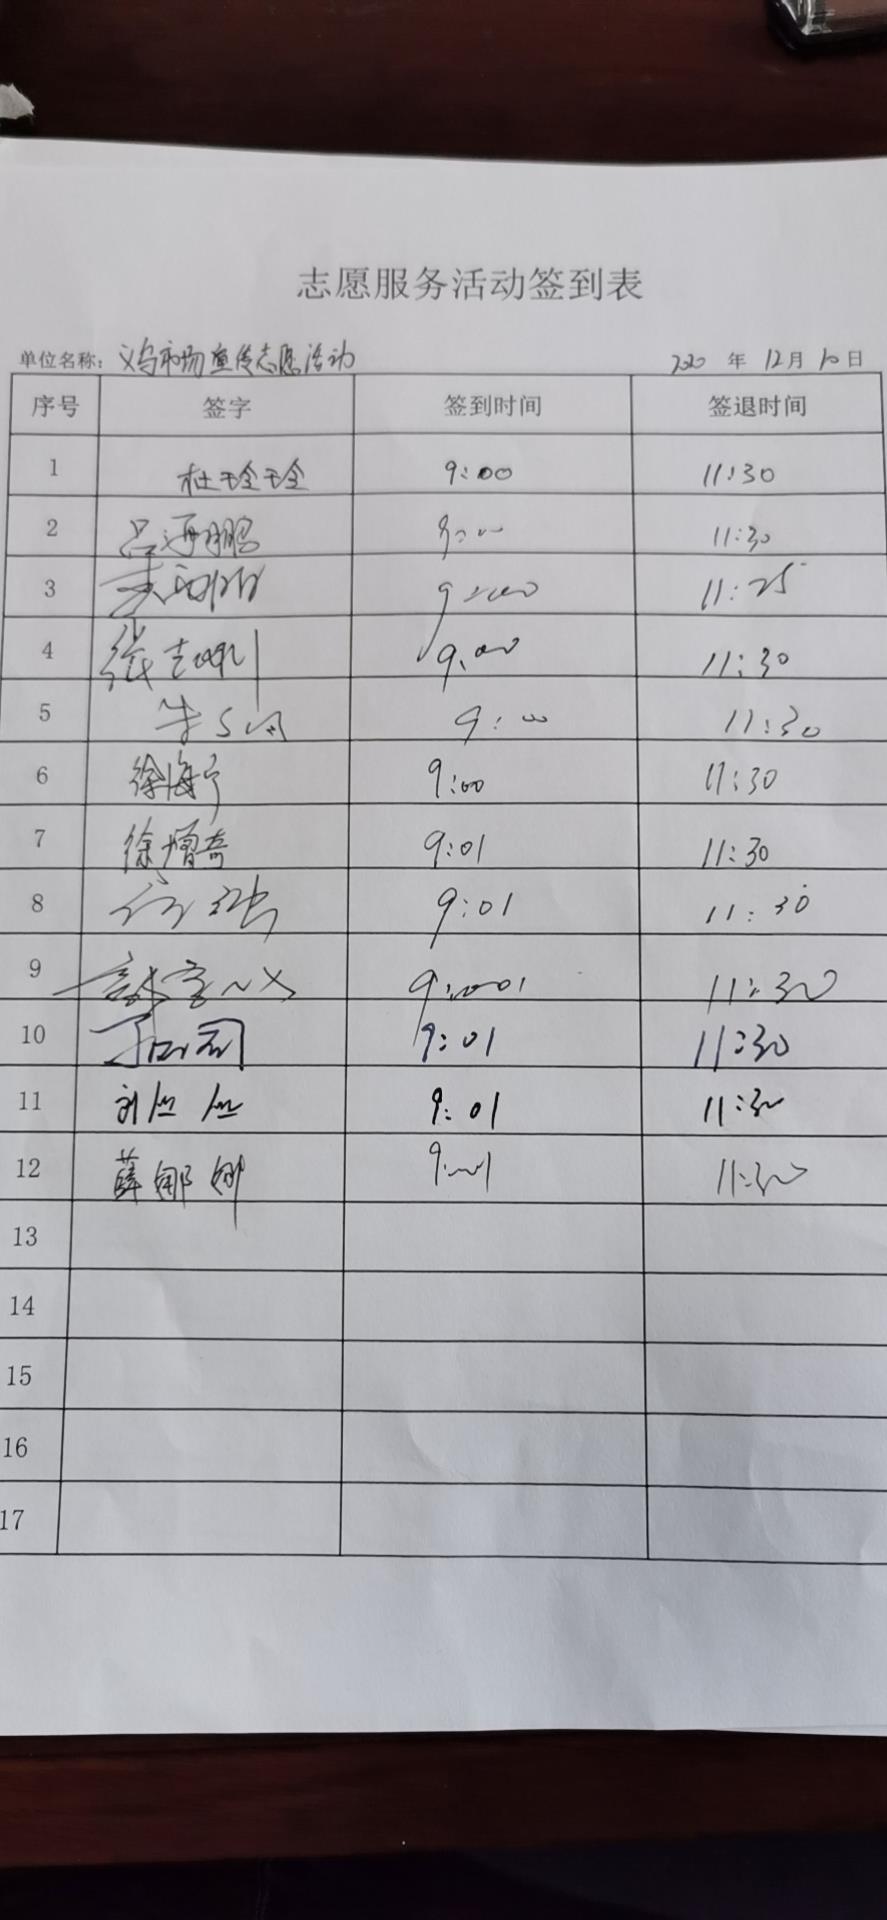 志愿服务活动签到表
单位名称: 义乌市场宣传志愿活动 2020 年 12月 10日
序号 签字 签到时间 签退时间
1 杜玲玲 9:00 11:30
2 吕海鹏 9:00 11:30
3 9:00 11:25
4 张志刚 9:00 11:30
5 9:00 11:30
6 徐海宁 9:00 11:30
7 徐增奇 9:01 11:30
8 9:01 11:30
9 9:001 11:30
10 9:01 11:30
11 刘 9:01 11:30
12 薛娜娜 9:01 11:30
13
14
15
16
17